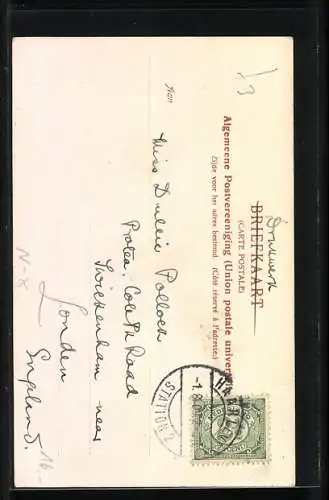 Drukwerk
BRIEFKAART
(CARTE POSTALE)
Algemeene Postvereeniging (Union postale universelle)
Zijde voor het adres bestemd. (Côté réservé à l'adresse.)
Aan
Miss Dulcie Pollock
Protea. Cole Pk Road
Twickenham near
London
England.
STATION 2
N-8
16,-